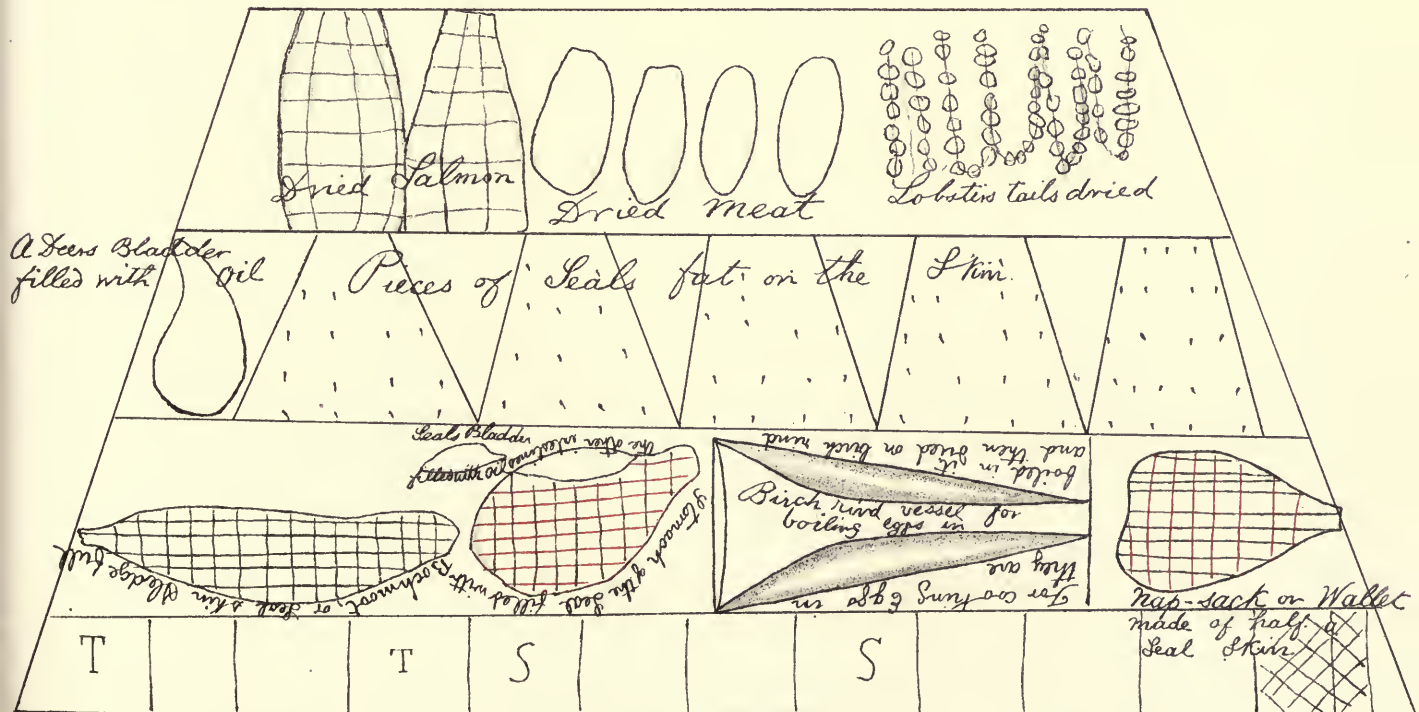 Dried Salmon
Dried meat
Lobsters tails dried
A Deers Bladder
filled with oil
Pieces of Seals fat on the Skin.
Seals Bladder
filled with oil
the other intestines
Stomach of the Seal filled with
Bochmoot or Seal skin Sledge full
boiled in it
and then dried on birch rind
Birch rind vessel for
boiling eggs in
For cooking Eggs in
they are
Nap-sack or Wallet
made of half a
Seal Skin
T T S S